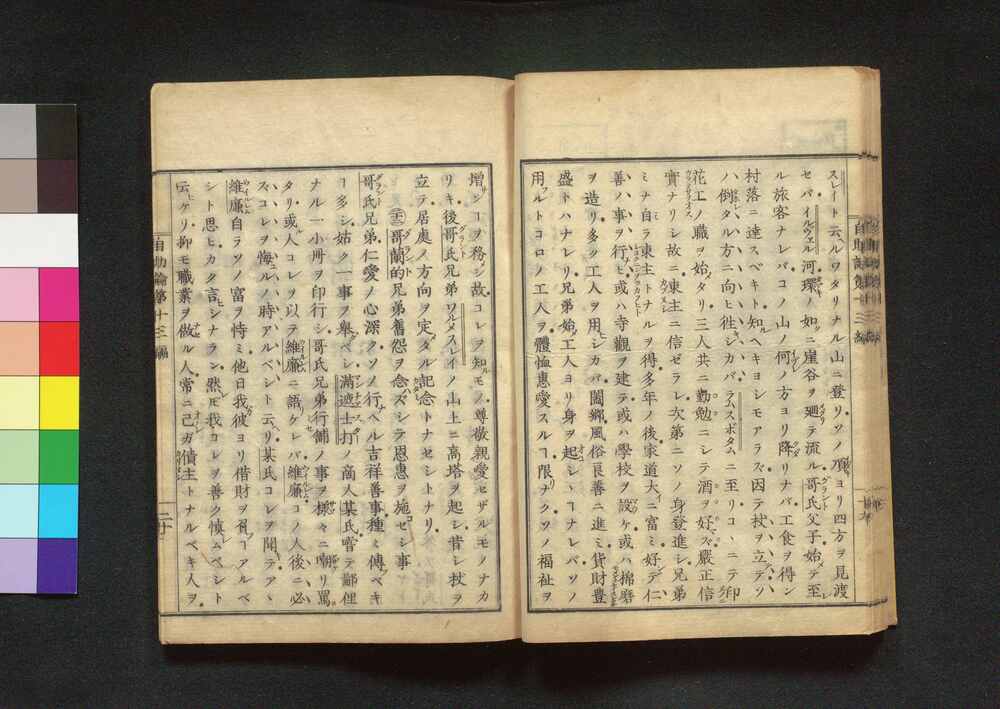 スレート云ルワタリナル山ニ登リソノ頂ヨリ四方ヲ見渡
セバイルウェル河環ノ如ニ崖谷ヲ廻テ流ル哥氏父子始テ至
ル旅客ナレバコノ山ノ何ノ方ヨリ降リナバ工食ヲ得ン
村落ニ達スベキト知ベキヨシモアラズ因テ杖ヲ立テソ
ハ倒タル方ニ向ヒ徃シカバラムスボタムニ至リコヽニテ印
花工ノ職ヲ始タリ三人共ニ勤勉ニシテ酒ヲ好ズ嚴正信
實ナリシ故ニ東主ニ信ゼラレ次第ニソノ身登進シ兄弟
ミナ自ラ東主トナルヲ得多年ノ後家道大ニ富ミ好デ仁
善ノ事ヲ行ヒ或ハ寺觀ヲ建テ或ハ學校ヲ設ケ或ハ棉磨
ヲ造リ多ク工人ヲ用ヒシカバ闔鄉風俗良善ニ進ミ貨財豊
盛トハナレリ兄弟始工人ヨリ身ヲ起シヽヿナレバソノ
用フルトコロノ工人ヲ體恤惠愛スルヿ限ナクソノ福祉ヲ
増シヿヲ務シ故コレヲ知モノ尊敬親愛セザルモノナカ
リキ後哥氏兄弟ワルメスレイノ山上ニ高塔ヲ起シ昔シ杖ヲ
立テ居處ノ方向ヲ定メタル記念トナセシトナリ
哥蘭的兄弟舊怨ヲ念ハズシテ恩惠ヲ施セシ事
哥氏兄弟仁愛ノ心深クソノ行ヘル吉祥善事種ミ傳ベキ
ヿ多シ姑ク一事ヲ舉ベシ滿遮士打ノ商人某氏嘗テ鄙俚
ナル一小冊ヲ印行シ哥氏兄弟行舗ノ事ヲ樣々ニ嘲リ罵
タリ或人コレヲ以テ維廉ニ語リケレバ維廉コノ人後ニ必
スコレヲ悔ルノ時アルベシト云リ某氏コレヲ聞テアヽ
維廉自ラソノ富ヲ恃ミ他日我彼ヨリ借財ヲ負ヿアルベ
シト思ヒカク言シナラン然モ我コレヲ善ク慎ムベシト
云ケリ抑モ職業ヲ做ル人常ニ己ガ債主トナルベキ人ヲ
自助論第十三編